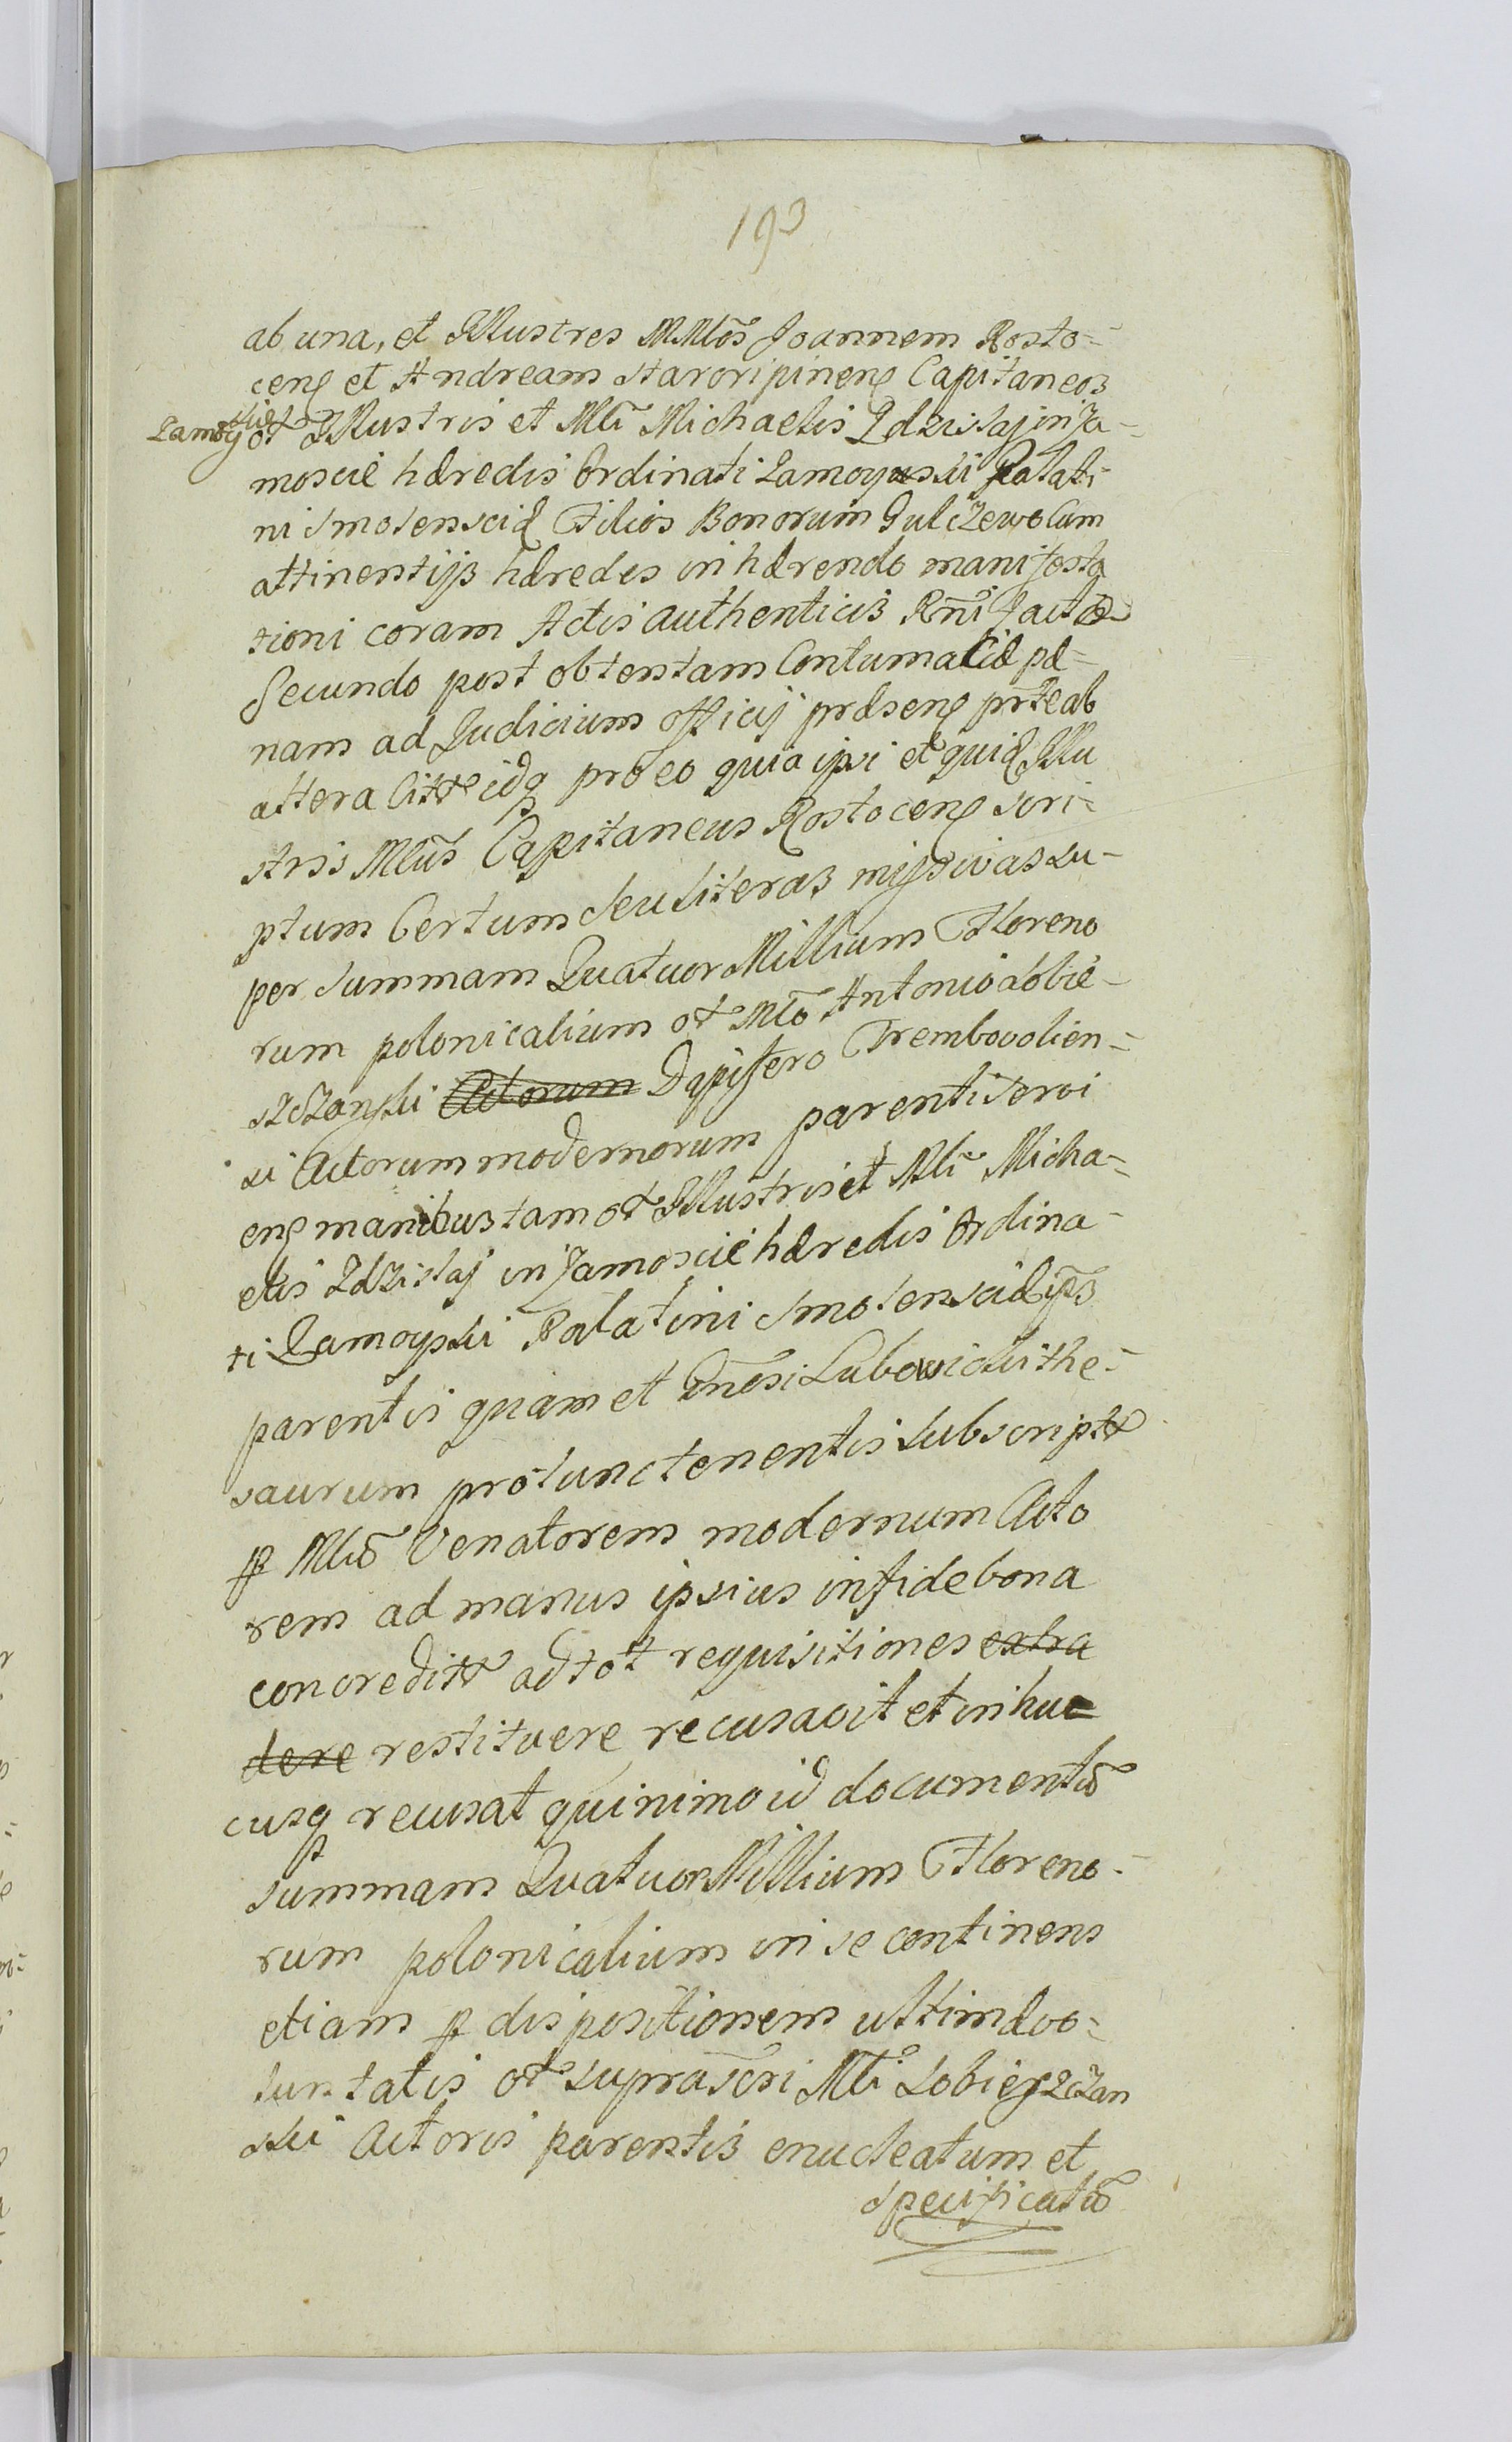 193
ab una, et Illustres MMlos Joannem Rosto=
cenẽ et Andream Staroripinenẽ Capitaneos
Zamoyskie
ot Illustris et Mli Michaelis Zdzislaj in Za-
moscie hæredis Ordinati Zamoyskii Palati-
ni Smolensciẽ Filios Bonorum Gulczewo Cum
attinentijs hæredes inhærendo manifesta
tioni coram Actis authenticis Rñi factæ
Secundo post obtentam Contumaciæ pæ=
nam ad Judicium officij præsenẽ prte ab
altera Cittt idq pro eo quia ipsi et quiẽ Illu
stris Mlus Capitaneus Rostocenẽ scri-
ptum Certum seu literas missivas su-
per summam Quatuor Millium Floreno
rum polonicalium ot Mlo Antonio Sobie-
szczanski Actorum Dapifero Trembovolien=
si Actorum modernorum parenti servi
enẽ manibus tam ot Illustris et Mli Micha=
elis Zdzislaj in Zamoscie hæredis Ordina-
ti Zamoyski Palatini Smolensciæ ips
parentis quam et Gnosi Lubowicki the=
saurum pro tunc tenentis subscriptt
p Mlũ Venatorem modernum Acto
rem ad manus ipsius in fide bona
concreditt ad tot requisitiones extra
dere restituere recusavit et in huc
cusq recusat quinimo id documentũ
summam Quatuor Millium Floreno=
rum polonicalium in se continens
etiam p dispositionem ultimævo=
luntatis ot suprascri Mli Sobieszczan
ski Actoris parentis enucleatum et
specificatũ